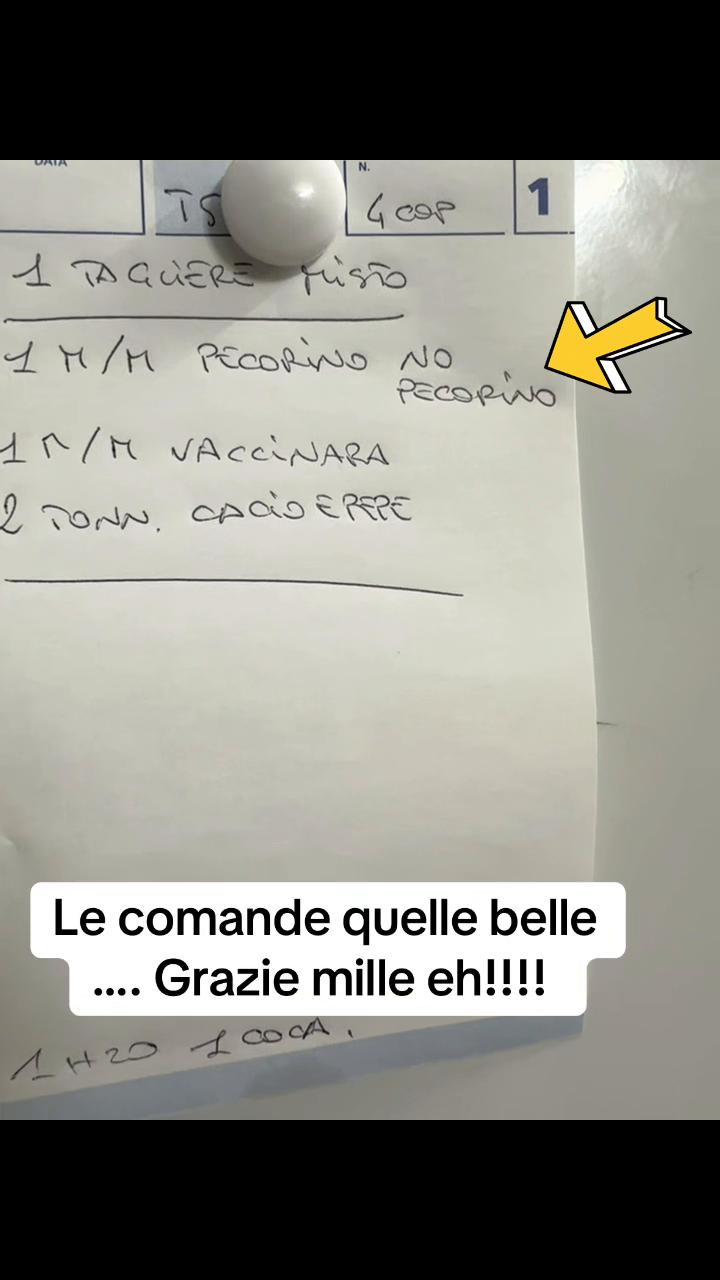 DATA
N.
T5
4 COP
1
1 TAGLIERE MISTO
1 M/M PECORINO NO
PECORINO
1 M/M VACCINARA
2 TONN. CACIO E PEPE
Le comande quelle belle
.... Grazie mille eh!!!!
1 H20 1 COCA.